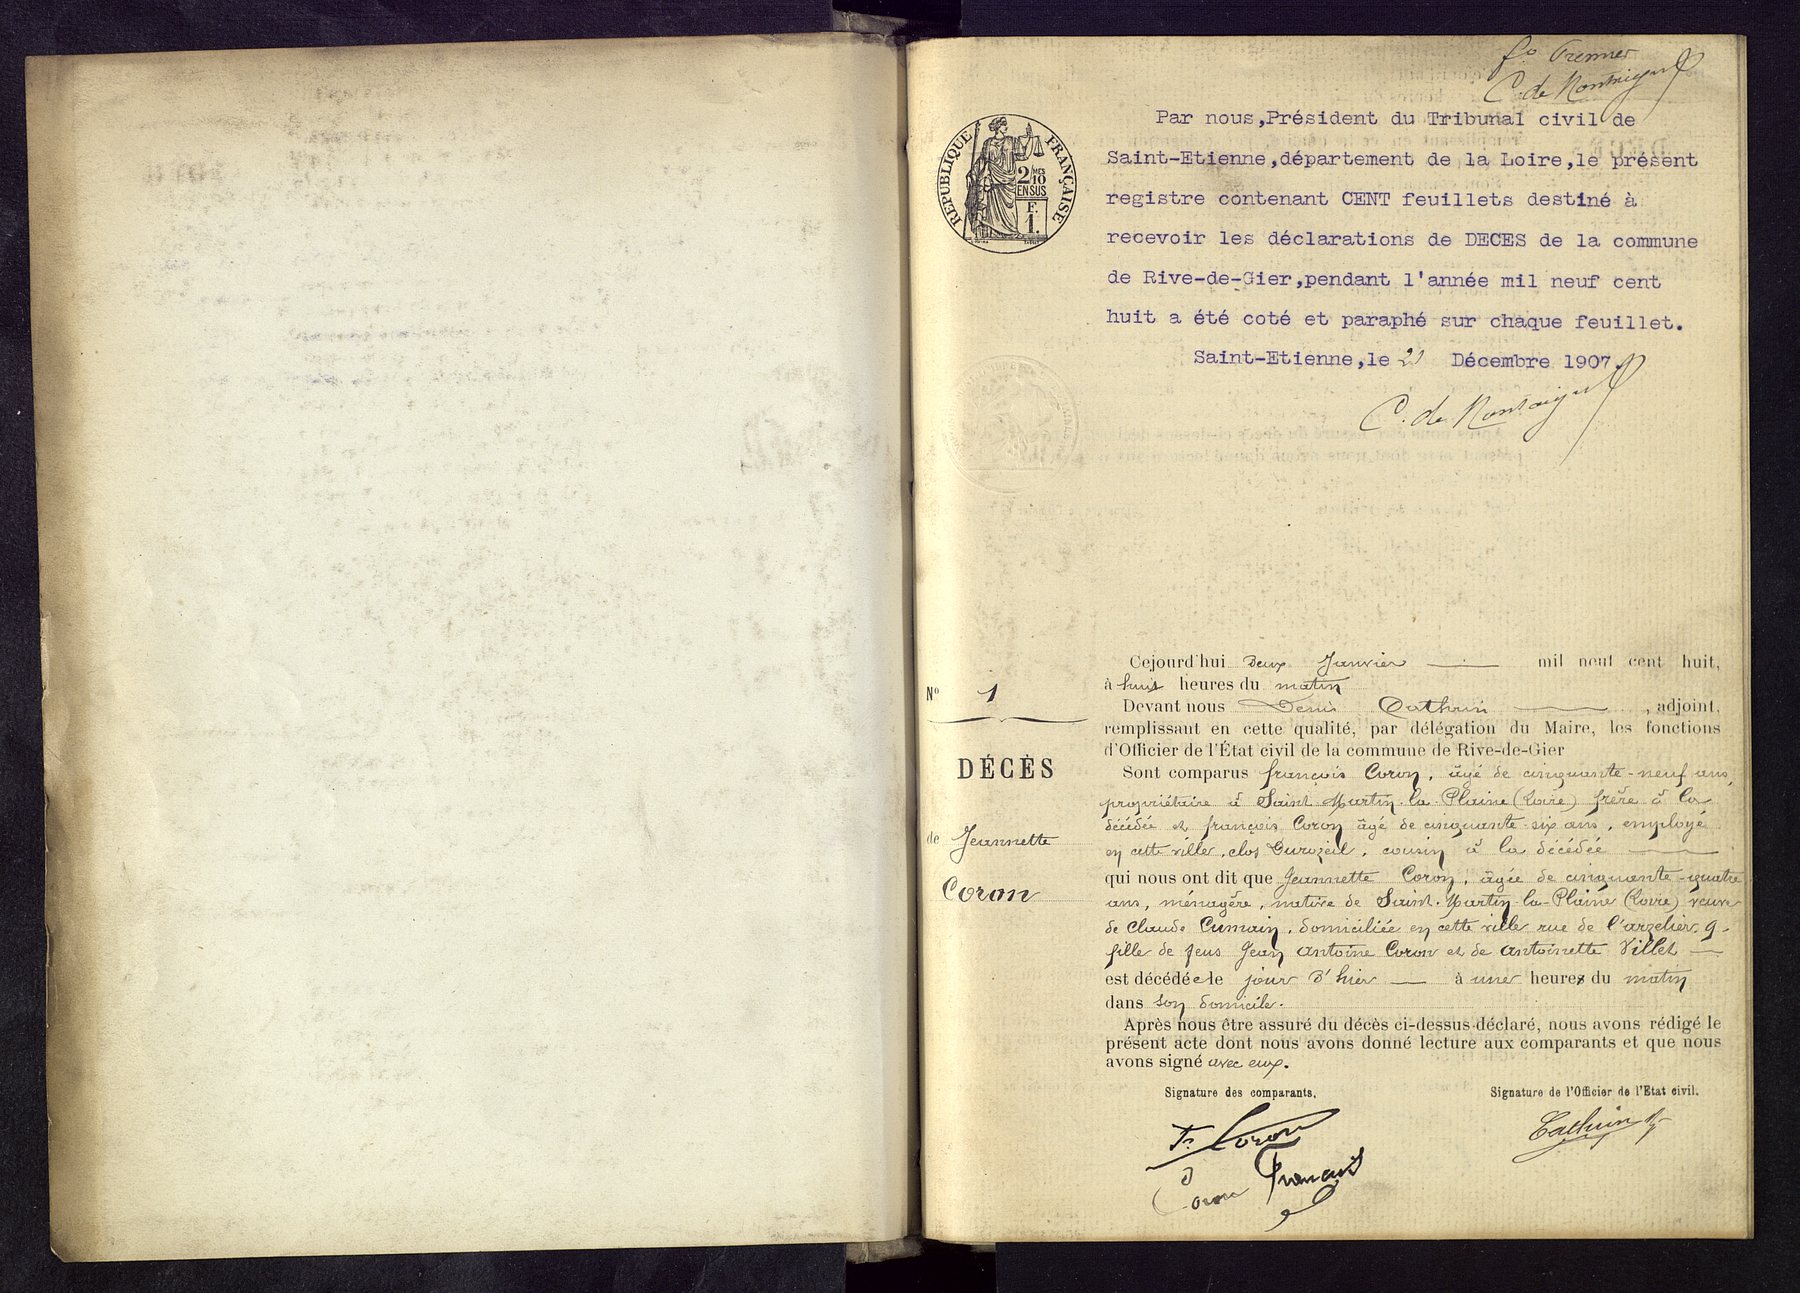 fo Premier
C. de Montaigut
Par nous,Président du Tribunal civil de
Saint-Etienne,département de la Loire,le présent
registre contenant CENT feuillets destiné à
recevoir les déclarations de DECES de la commune
de Rive-de-Gier,pendant l'année mil neuf cent
huit a été coté et paraphé sur chaque feuillet.
Saint-Etienne,le 21 Décembre 1907.
C. de Montaigut
REPUBLIQUE FRANÇAISE
2/10 MES
EN SUS
F.
1.
No 1
DÉCÈS
de Jeannette
Coron
Cejourd'hui deux Janvier mil neuf cent huit,
à huit heures du matin
Devant nous Denis Cathrin , adjoint,
remplissant en cette qualité, par délégation du Maire, les fonctions
d'Officier de l'État civil de la commune de Rive-de-Gier
Sont comparus françois Coron, âgé de cinquante-neuf ans,
propriétaire à Saint-Martin-la-Plaine (Loire) frère à la
décédée et françois Coron âgé de cinquante-six ans, employé
en cette ville, clos , cousin à la décédée
qui nous ont dit que Jeannette Coron, âgée de cinquante-quatre
ans, ménagère, native de Saint-Martin-la-Plaine (Loire) veuve
de Claude Cumain, domiciliée en cette ville rue de l'arzelier 9
fille de feus Jean Antoine Coron et de Antoinette Villet
est décédée le jour d'hier à une heures du matin
dans son domicile.
Après nous être assuré du décès ci-dessus déclaré, nous avons rédigé le
présent acte dont nous avons donné lecture aux comparants et que nous
avons signé avec eux.
Signature des comparants,
Signature de l'Officier de l'Etat civil.
Fs Coron
Coron François
Cathrin